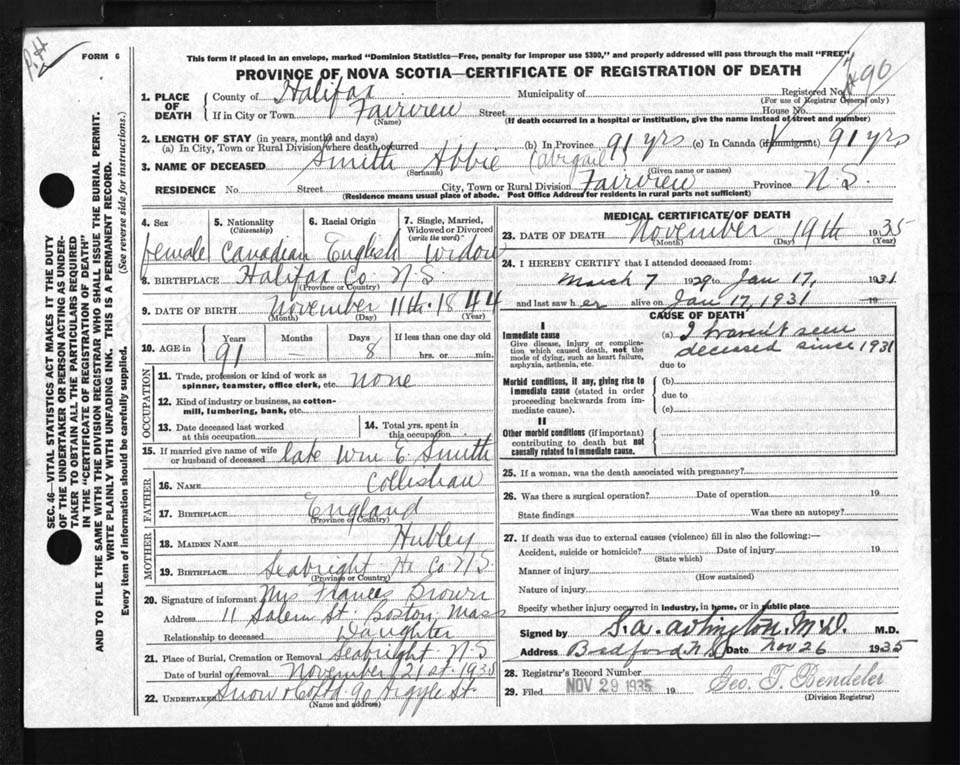 FORM 6
This form if placed in an envelope, marked "Dominion Statistics—Free, penalty for improper use $300," and properly addressed will pass through the mail "FREE"
PROVINCE OF NOVA SCOTIA—CERTIFICATE OF REGISTRATION OF DEATH
490
SEC. 46—VITAL STATISTICS ACT MAKES IT THE DUTY
OF THE UNDERTAKER OR PERSON ACTING AS UNDER-
TAKER TO OBTAIN ALL THE PARTICULARS REQUIRED
IN THE "CERTIFICATE OF REGISTRATION OF DEATH"
AND TO FILE THE SAME WITH THE DIVISION REGISTRAR WHO SHALL ISSUE THE BURIAL PERMIT.
WRITE PLAINLY WITH UNFADING INK. THIS IS A PERMANENT RECORD.
Every item of information should be carefully supplied. (See reverse side for instructions.)
1. PLACE OF DEATH
County of Halifax Municipality of Registered No.
(For use of Registrar General only)
If in City or Town Fairview Street House No.
(Name) (If death occurred in a hospital or institution, give the name instead of street and number)
2. LENGTH OF STAY (in years, months and days)
(a) In City, Town or Rural Division where death occurred (b) In Province 91 yrs (c) In Canada (if immigrant) 91 yrs
3. NAME OF DECEASED Smith Abbie (Abigail)
(Surname) (Given name or names)
RESIDENCE No. Street City, Town or Rural Division Fairview Province N.S.
(Residence means usual place of abode. Post Office Address for residents in rural parts not sufficient)
4. Sex 5. Nationality (Citizenship) 6. Racial Origin 7. Single, Married, Widowed or Divorced (write the word)
female Canadian English Widow
8. BIRTHPLACE Halifax Co N.S.
(Province or Country)
9. DATE OF BIRTH November 11th 1844
(Month) (Day) (Year)
10. AGE in Years Months Days If less than one day old
91 — 8 hrs. or min.
OCCUPATION
11. Trade, profession or kind of work as spinner, teamster, office clerk, etc. none
12. Kind of industry or business, as cotton-mill, lumbering, bank, etc.
13. Date deceased last worked at this occupation
14. Total yrs. spent in this occupation
15. If married give name of wife or husband of deceased late Wm E. Smith
FATHER
16. NAME Collishaw
17. BIRTHPLACE England
(Province or Country)
MOTHER
18. MAIDEN NAME Hubley
19. BIRTHPLACE Seabright Hx Co. N.S.
(Province or Country)
20. Signature of informant Mrs Frances Brown
Address 11 Salem St. Boston Mass
Relationship to deceased Daughter
21. Place of Burial, Cremation or Removal Seabright N.S.
Date of burial or removal November 21st 1935
22. UNDERTAKER Snow & Co Ltd. 90 Argyle St.
(Name and address)
MEDICAL CERTIFICATE OF DEATH
23. DATE OF DEATH November 19th 1935
(Month) (Day) (Year)
24. I HEREBY CERTIFY that I attended deceased from:
March 7 1929 to Jan 17, 1931
and last saw her alive on Jan 17, 1931 19
CAUSE OF DEATH
I
Immediate cause
Give disease, injury or complication which caused death, not the mode of dying, such as heart failure, asphyxia, asthenia, etc.
(a) I haven't seen
deceased since 1931
due to
Morbid conditions, if any, giving rise to immediate cause (stated in order proceeding backwards from immediate cause).
(b)
due to
(c)
II
Other morbid conditions (if important) contributing to death but not causally related to immediate cause.
25. If a woman, was the death associated with pregnancy?
26. Was there a surgical operation? Date of operation 19
State findings Was there an autopsy?
27. If death was due to external causes (violence) fill in also the following:—
Accident, suicide or homicide? Date of injury 19
(State which)
Manner of injury
(How sustained)
Nature of injury
Specify whether injury occurred in industry, in home, or in public place
Signed by M.D. M.D.
Address Bedford N.S. Date Nov 26 1935
28. Registrar's Record Number
29. Filed NOV 29 1935 19 Geo. T. Bendeler
(Division Registrar)